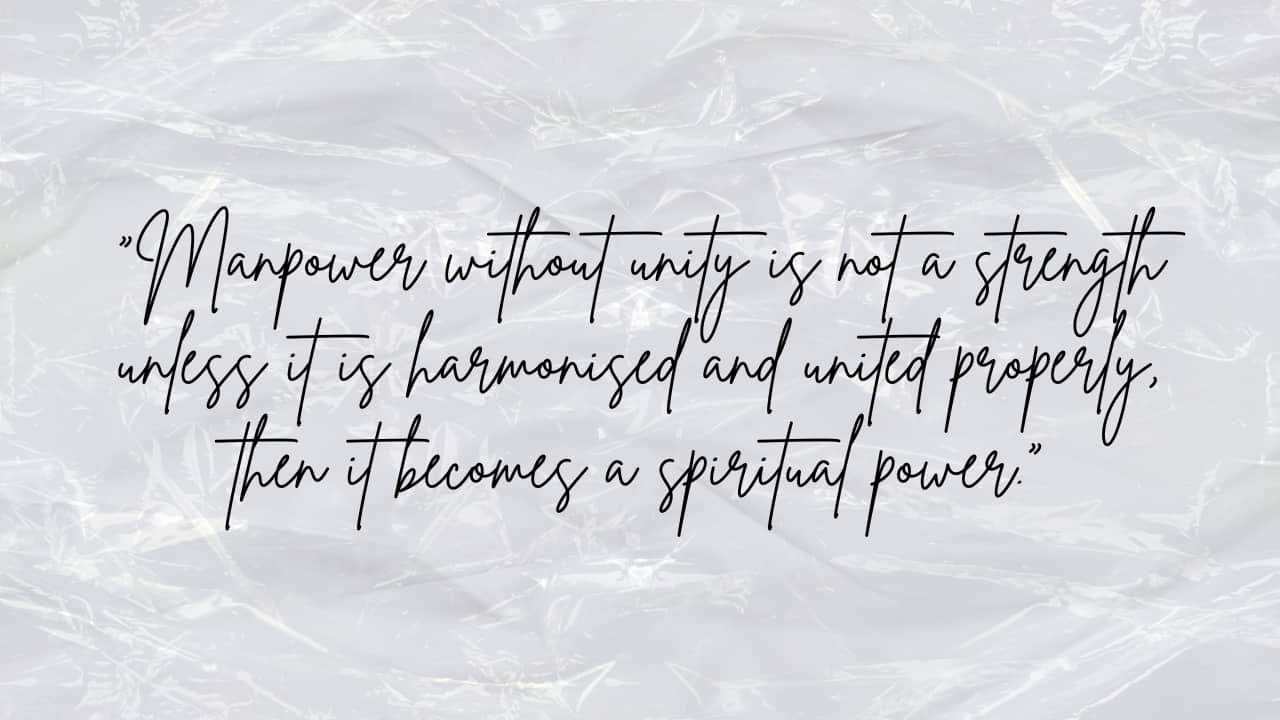 "Manpower without unity is not a strength
unless it is harmonised and united properly,
then it becomes a spiritual power."